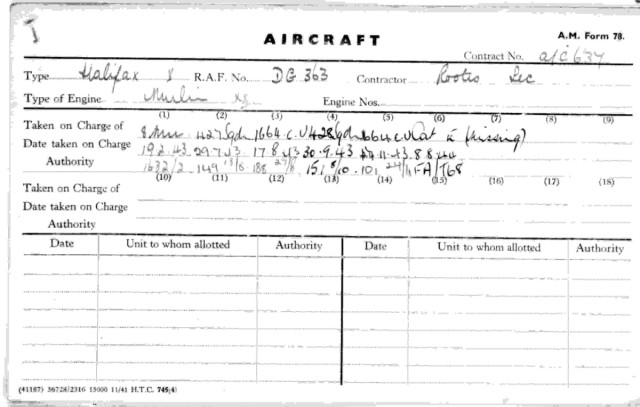 AIRCRAFT
A.M. Form 78.
Contract No. a/c 637
Type Halifax R.A.F. No. DG 363 Contractor Rootes Sec
Type of Engine Merlin Engine Nos.
(1) (2) (3) (4) (5) (6) (7) (8) (9)
Taken on Charge of 427 Sqdn 1664 C.U 428 Sqdn 1664 cu Cat (Missing)
Date taken on Charge 19 2.43 29.7.43 17 8 43 30.9.43 11.43 8 8
Authority 1632/2 149 18/8 188 151 8/10 101 24/11 FA/T68
(10) (11) (12) (13) (14) (15) (16) (17) (18)
Taken on Charge of
Date taken on Charge
Authority
Date Unit to whom allotted Authority Date Unit to whom allotted Authority
(41187) 36728/2316 15000 11/41 H.T.C. 745(4)